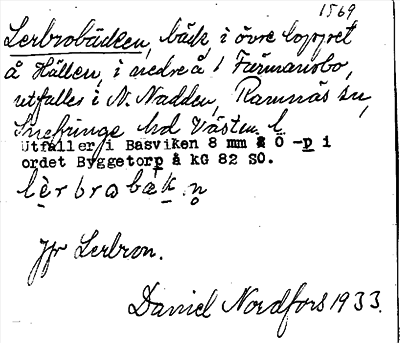 1569
Lerbrobäcken, bäck, i övre loppet
å Hällen, i nedre å 1 Färmansbo,
utfaller i N. Nadden, Ramnäs sn,
Snefringe hd Västm. l.
Utfaller i Basviken 8 mm & Ö -p i
ordet Byggetorp å KG 82 SO.
lèrbrobæk.n
Jfr Lerbron.
Daniel Nordfors 1933.